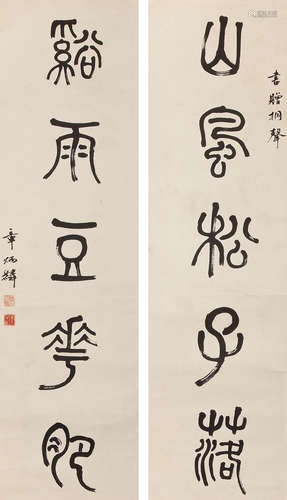 山風松子落
書贈桐聲
谿雨豆花肥
章炳麟